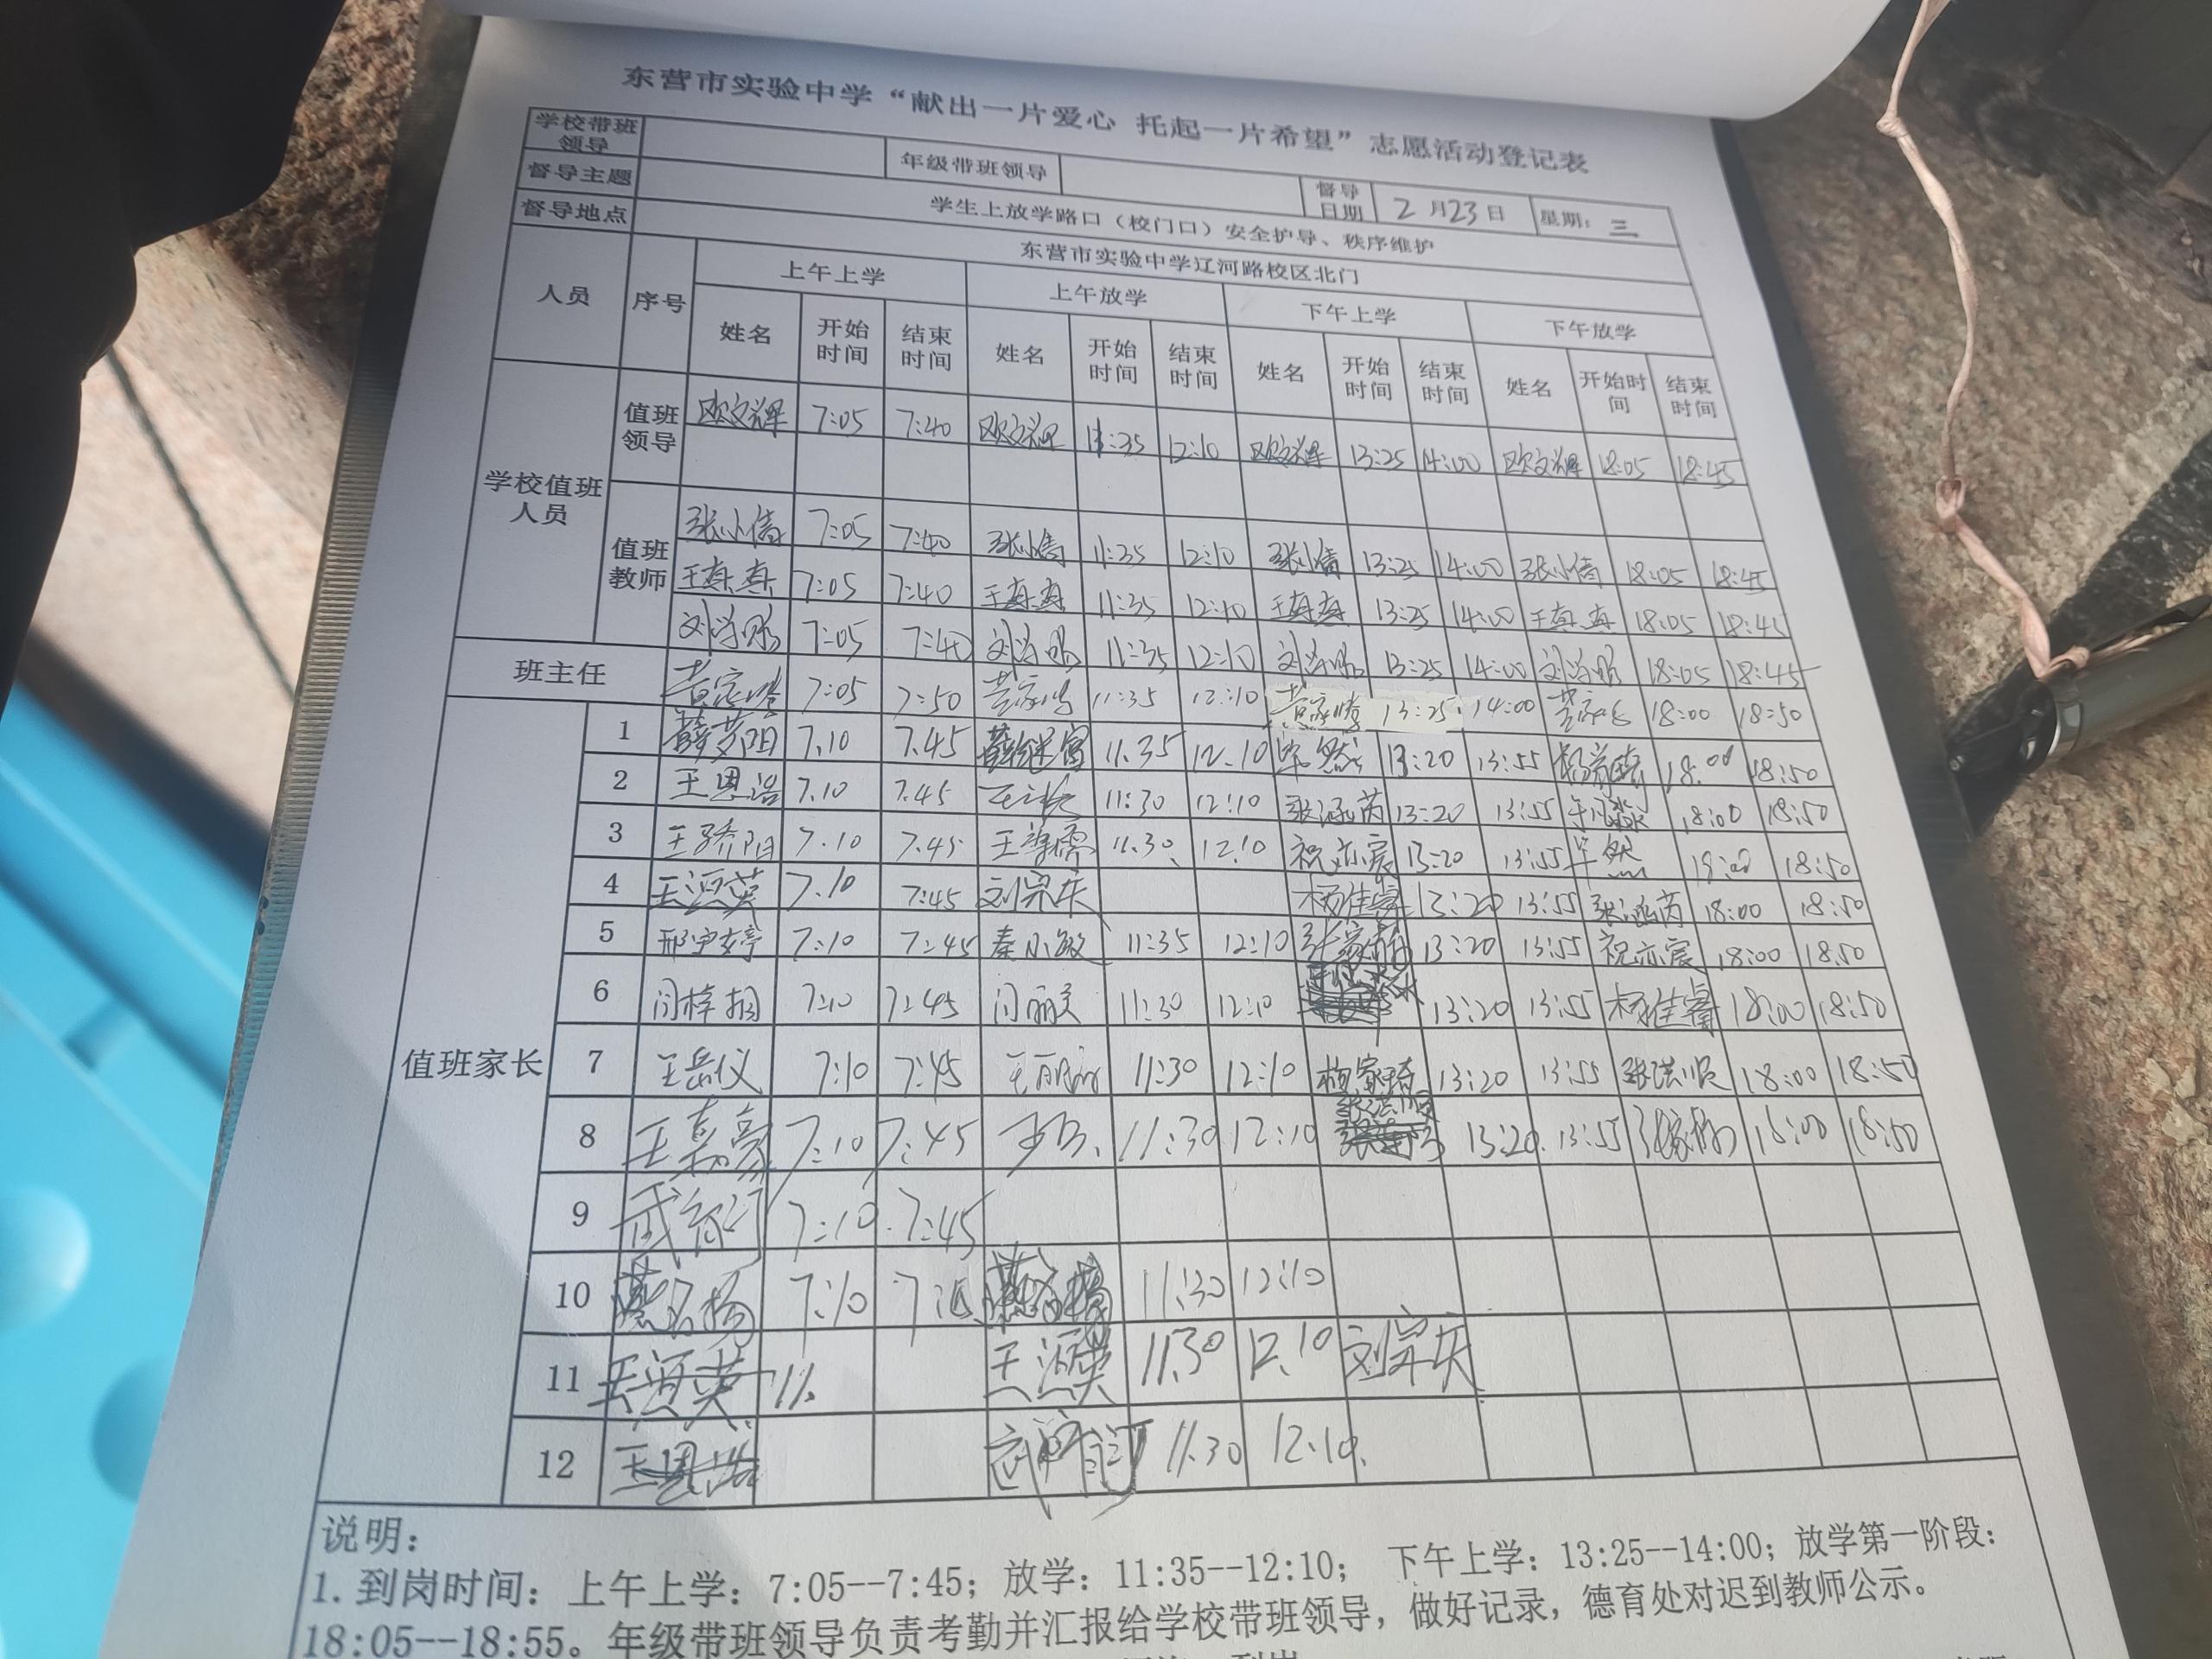 东营市实验中学“献出一片爱心 托起一片希望”志愿活动登记表
学校带班领导 年级带班领导 督导日期 2月23日 星期：三
督导主题 学生上放学路口（校门口）安全护导、秩序维护
督导地点 东营市实验中学辽河路校区北门
人员 序号 上午上学 上午放学 下午上学 下午放学
姓名 开始时间 结束时间 姓名 开始时间 结束时间 姓名 开始时间 结束时间 姓名 开始时间 结束时间
学校值班人员
值班领导 欧文辉 7:05 7:40 欧文辉 11:35 12:10 欧文辉 13:25 14:00 欧文辉 18:05 18:45
值班教师 张小倩 7:05 7:40 张小倩 11:35 12:10 张小倩 13:25 14:00 张小倩 18:05 18:45
王真真 7:05 7:40 王真真 11:35 12:10 王真真 13:25 14:00 王真真 18:05 18:45
7:05 7:40 11:35 12:10 13:25 14:00 18:05 18:45
班主任 7:05 7:50 11:35 12:10 13:25 14:00 18:00 18:50
值班家长
1 薛梦阳 7.10 7.45 11.35 12.10 毕然 13:20 13:55 18:00 18:50
2 王恩浩 7.10 7.45 11:30 12:10 张涵芮 13:20 13:55 18:00 18:50
3 王骄阳 7.10 7.45 11.30 12.10 祝亦宸 13:20 13:55 毕然 18:00 18:50
4 7.10 7:45 刘宗庆 杨佳睿 13:20 13:55 张涵芮 18:00 18:50
5 邢宇婷 7:10 7:45 秦小敏 11:35 12:10 13:20 13:55 祝亦宸 18:00 18:50
6 闫梓桐 7:10 7:45 闫丽美 11:30 12:10 13:20 13:55 杨佳睿 18:00 18:50
7 王岳仪 7:10 7:45 11:30 12:10 13:20 13:55 张洪顺 18:00 18:50
8 7:10 7:45 11:30 12:10 张洪顺 13:20 13:55 18:00 18:50
9 7:10 7:45
10 7:10 11:30 12:10
11 11. 11.30 12.10 刘宗庆
12 王恩浩 11.30 12.10
说明：
1.到岗时间：上午上学：7:05--7:45；放学：11:35--12:10； 下午上学：13:25--14:00；放学第一阶段：
18:05--18:55。年级带班领导负责考勤并汇报给学校带班领导，做好记录，德育处对迟到教师公示。